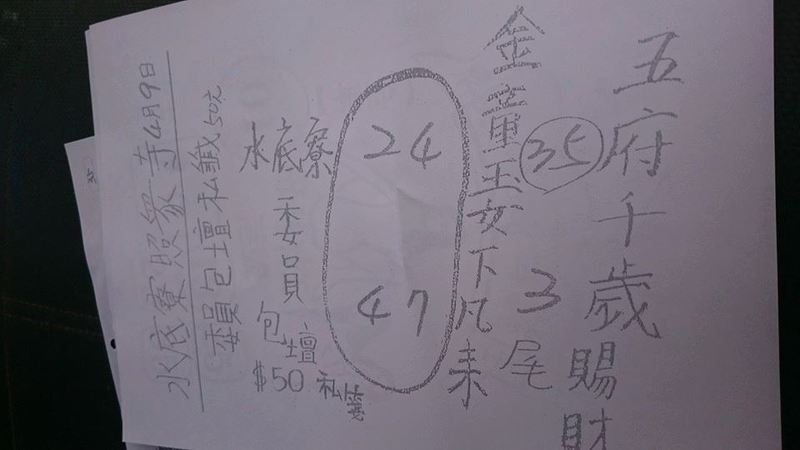 五府千歲賜財
35
3尾
金童玉女下凡來
24
47
水底寮
委員
包壇
$50
水底寮照眾寺4月9日
委員包壇私籤50元